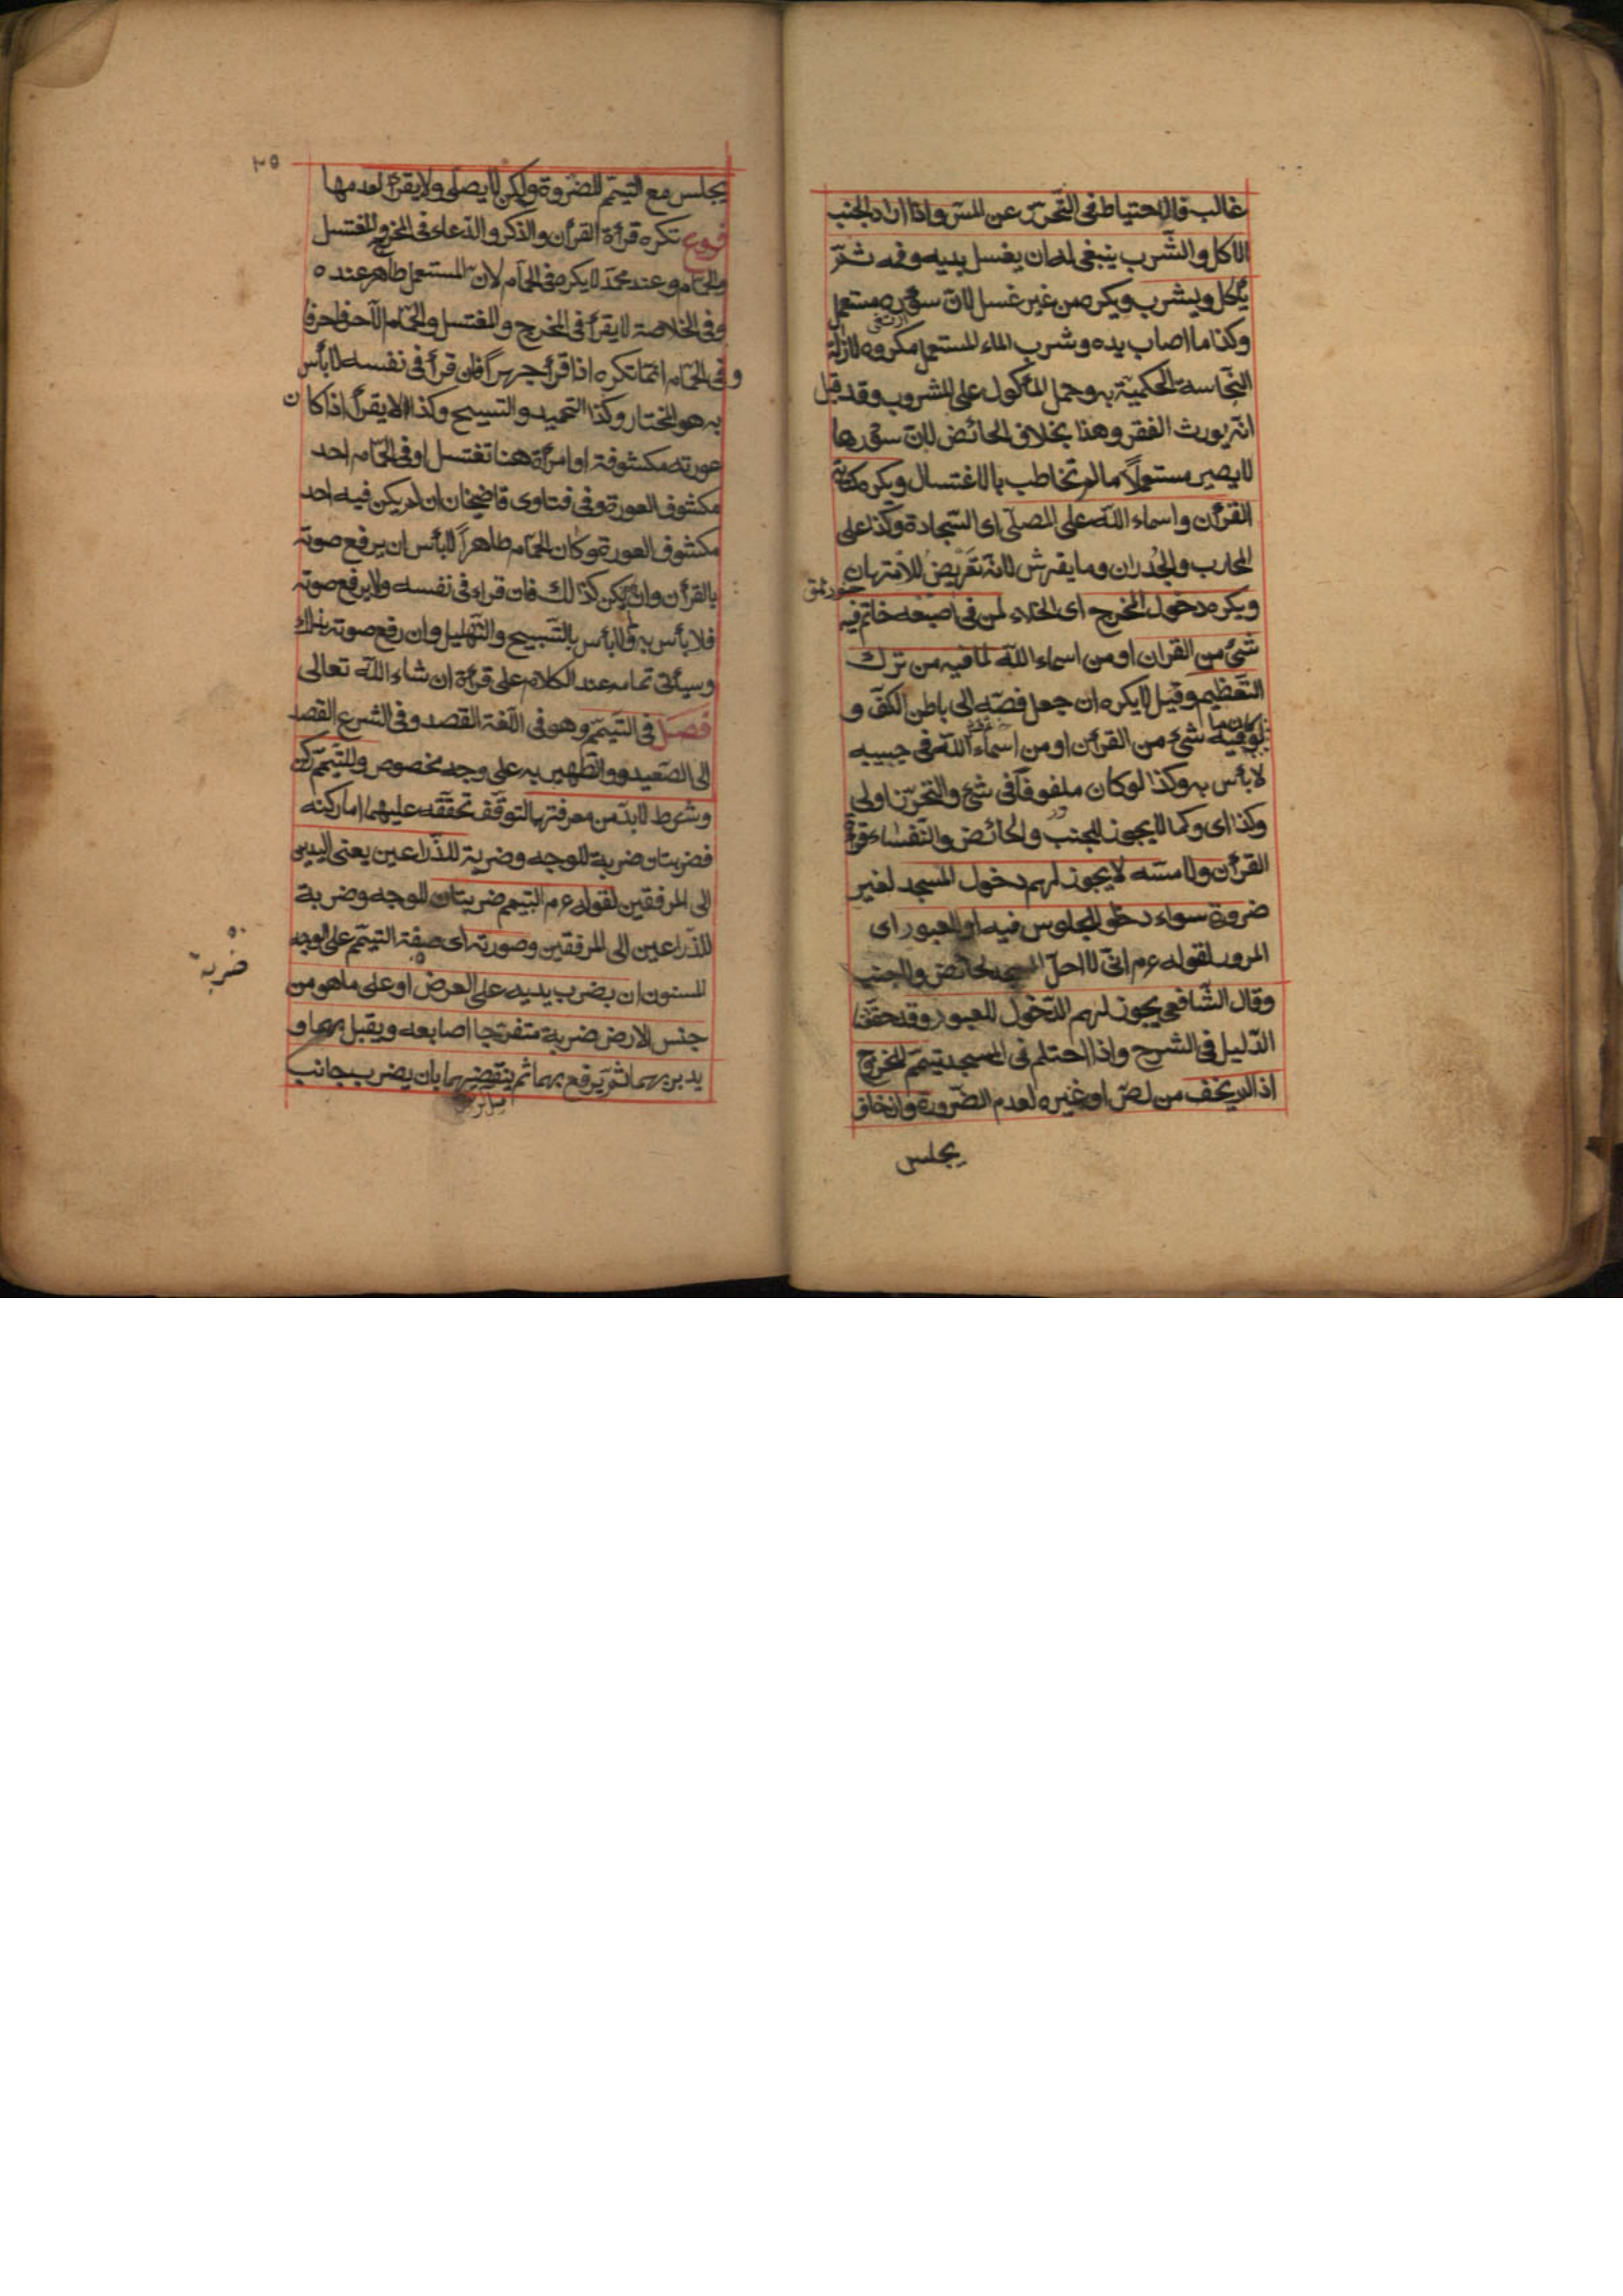 غالب فالاحتياط فى التحرّز عن المسّ واذا اراد الجنب
الاكل والشّرب ينبغى له ان يغسل يديه وفمه ثمّ
يأكل ويشرب ويكره من غير غسل لانّ سؤره مستعمل
وكذا ما اصاب يده وشرب الماء المستعمل مكروه لازالة
النجّاسة الحكميّة به وحمل المأكول على المشروب وقد قيل
انّه يورث الفقر وهذا بخلاف الحائض لانّ سؤرها
لا يصير مستعملاً ما لم تخاطب بالاغتسال ويكره كتابة
القرأن واسماء اللّه على المصلّى اى السّجادة وكذا على
المحارب والجُدران وما يفرش لانّه تَعْريضٌ للامتهان
ويكره دخول المخرج اى الخلاء لمن فى اصبعه خاتم فيه
شئ من القران او من اسماء اللّه لما فيه من ترك
التّعظيم وقيل لا يكره ان جعل فصّه الى باطن الكفّ و
لو كان ما فيه شئ من القرأن او من اسماء اللّه فى جيبه
لا بأس به وكذا لو كان ملفوفاً فى شئ والتحرّز اولى
وكذا اى وكما لا يجوز للجنب والحائض والنّفساء قرأة
القرأن ولا مسّه لا يجوز لهم دخول المسجد لغير
ضرورة سواء دخلوا للجلوس فيه او للعبور اى
المرور لقوله عم انّى لا احلّ المسجد لحائض ولا جنب
وقال الشّافعى يجوز لهم الدّخول للعبور وقد حققنا
الدّليل فى الشرح واذا احتلم فى المسجد تيمّم للخروج
اذا لم يخف من لصّ او غيره لعدم الضّرورة وان خاف
يجلس
٢٥
يجلس مع التيمّم للضّرورة ولكن لا يصلى ولا يقرأ لعدمها
فروع تكره قرأة القرأن والذكر والدّعاء فى المخرج والمغتسل
والحمّام وعند محمّد لا يكره فى الحمّام لانّ المستعمل طاهر عنده
وفى الخلاصة لا يقرأ فى المخرج والمغتسل والحمّام الّا حرفا حرفا
وفى الحمّام انّما تكره اذا قرأ جهراً فان قرأ فى نفسه لا بأس
به هو المختار وكذا التحميد والتسبيح وكذا لا يقرأ اذا كان
عورته مكشوفة او امرأة هنا تغتسل او فى الحمّام احد
مكشوف العورة وفى فتاوى قاضيخان ان لم يكن فيه احد
مكشوف العورة وكان الحمّام طاهراً لا بأس ان يرفع صوته
بالقرأن وان لم يكن كذالك فان قراء فى نفسه ولا يرفع صوته
فلا بأس به ولا بأس بالتّسبيح والتّهليل وان رفع صوته بذلك
وسيأتى تمامه عند الكلام على قرأة ان شاء اللّه تعالى
فصل فى التّيمّم وهو فى اللّغة القصد وفى الشرع القصد
الى الصّعيد والتّطهير به على وجه مخصوص وللتّيمّم ركن
وشرط لا بدّ من معرفتها لتوقّف تحققه عليهما امّا ركنه
فضربتان ضربة للوجه وضربة للذّراعين يعنى اليدين
الى المرفقين لقوله عم التيمم ضربتان للوجه وضربة
للذّراعين الى المرفقين وصورته اى صفة التيمّم على الوجه
المسنون ان يضرب يديه على العرض او على ما هو من
جنس الارض ضربة متفرّجا اصابعه ويقبل بهما و
يدبر بهما ثمّ يرفع بهما ثم ينقضهما بان يضرب جانب
ضربة